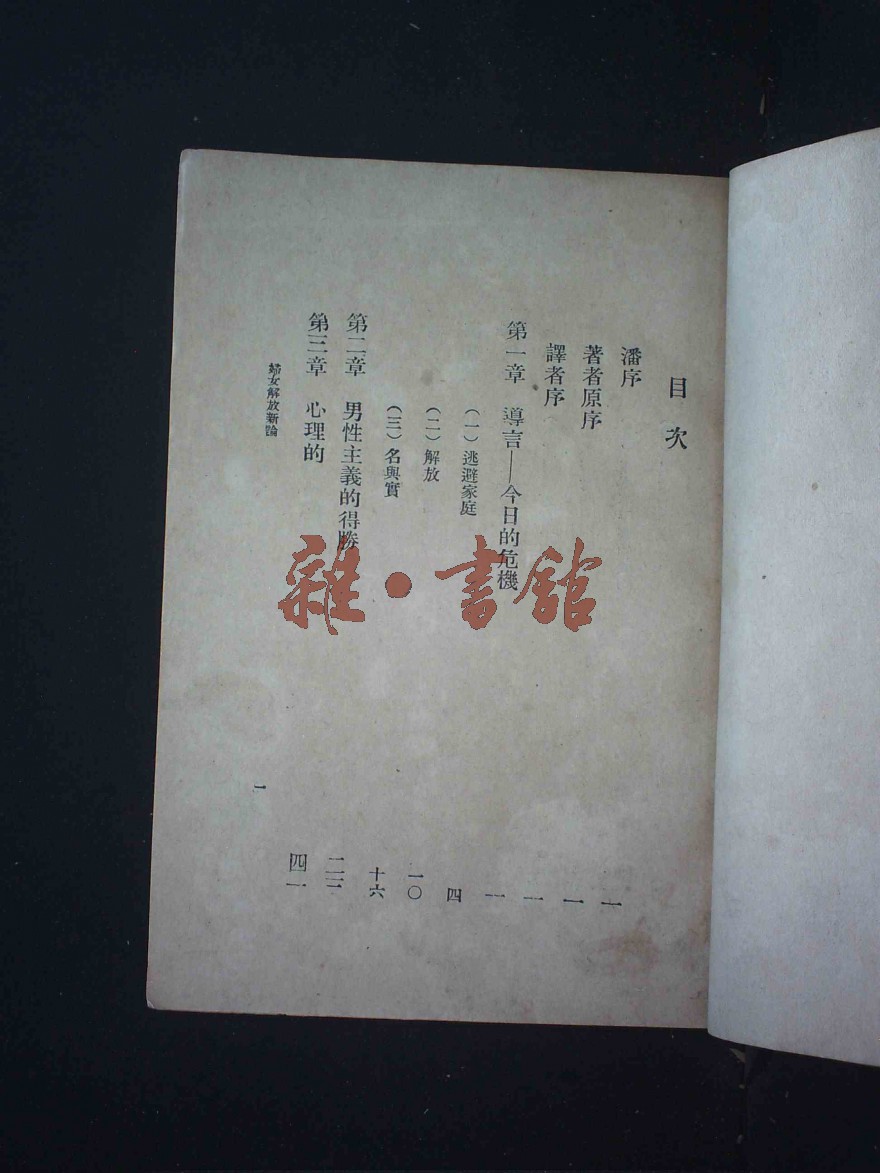 目次
潘序 一
著者原序 一
譯者序 一
第一章 導言——今日的危機 一
（一）逃避家庭 四
（二）解放 一〇
（三）名與實 十六
第二章 男性主義的得勝 二二
第三章 心理的 四一
婦女解放新論 一
雜·書館